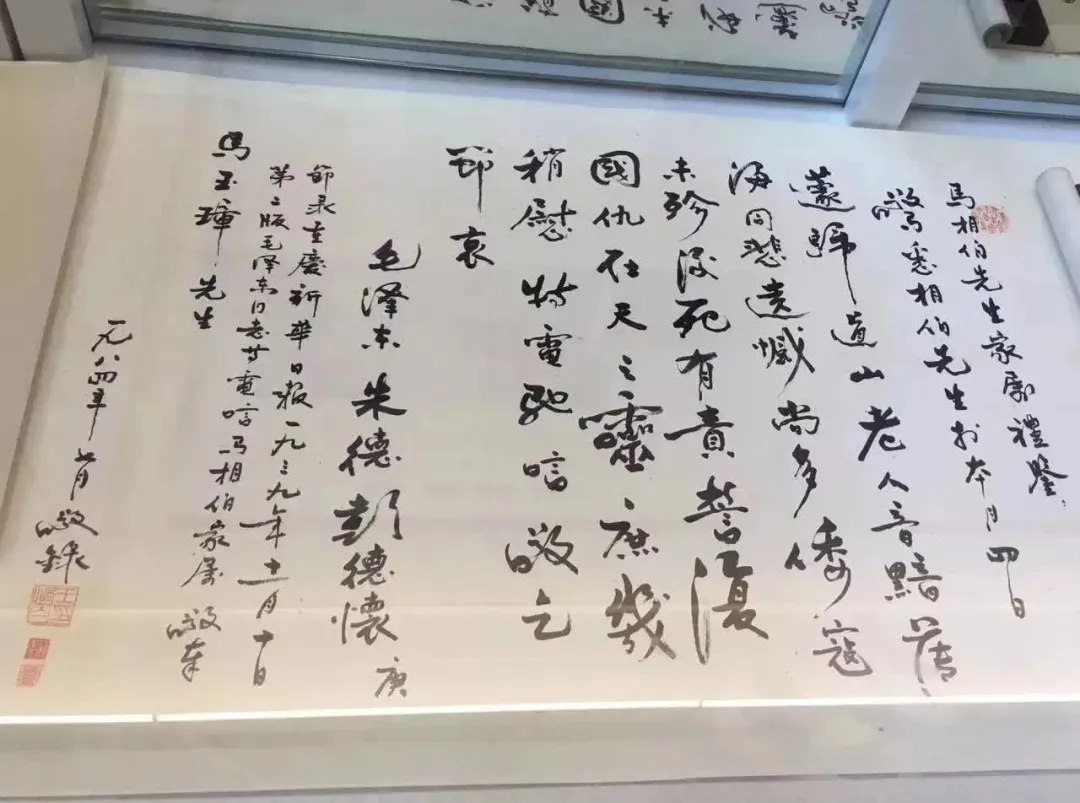 馬相伯先生家屬禮鑒：
驚悉相伯先生於本月四日
遽歸道山老人音黯薄
海同悲遺憾尚多倭寇
未殄後死有責誓復
國仇在天之靈庶幾
稍慰特電馳唁敬乞
節哀
毛泽东朱德彭德懷 庚
節录重慶新華日報一九三九年十一月十日
第二版毛泽东同志等電唁马相伯家屬 敬奉
馬玉璋先生
一九八四年 七月敬録